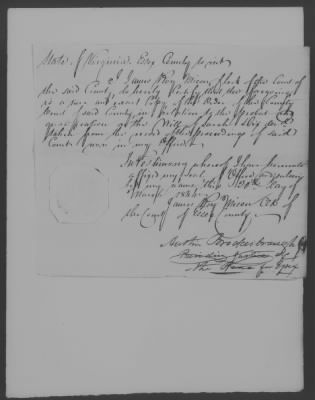 State of Virginia, Essex County to wit
I James Roy Micou Clerk of the Court of
the said County do hereby Certify that the foregoing
is a true and exact Copy of the Order of the County
Court of said County in relation to the probat and
qualification of the Will of Sarah and
taken from the record of the proceedings of said
Court now in my Office
In testimony whereof I have hereunto
affixed my Seal of Office and subscribed
my name, this 20th day of
March
James Roy Micou Clk of
the Court of Essex County
Austin Brockenbrough
Presiding Justice of
the Peace for Essex